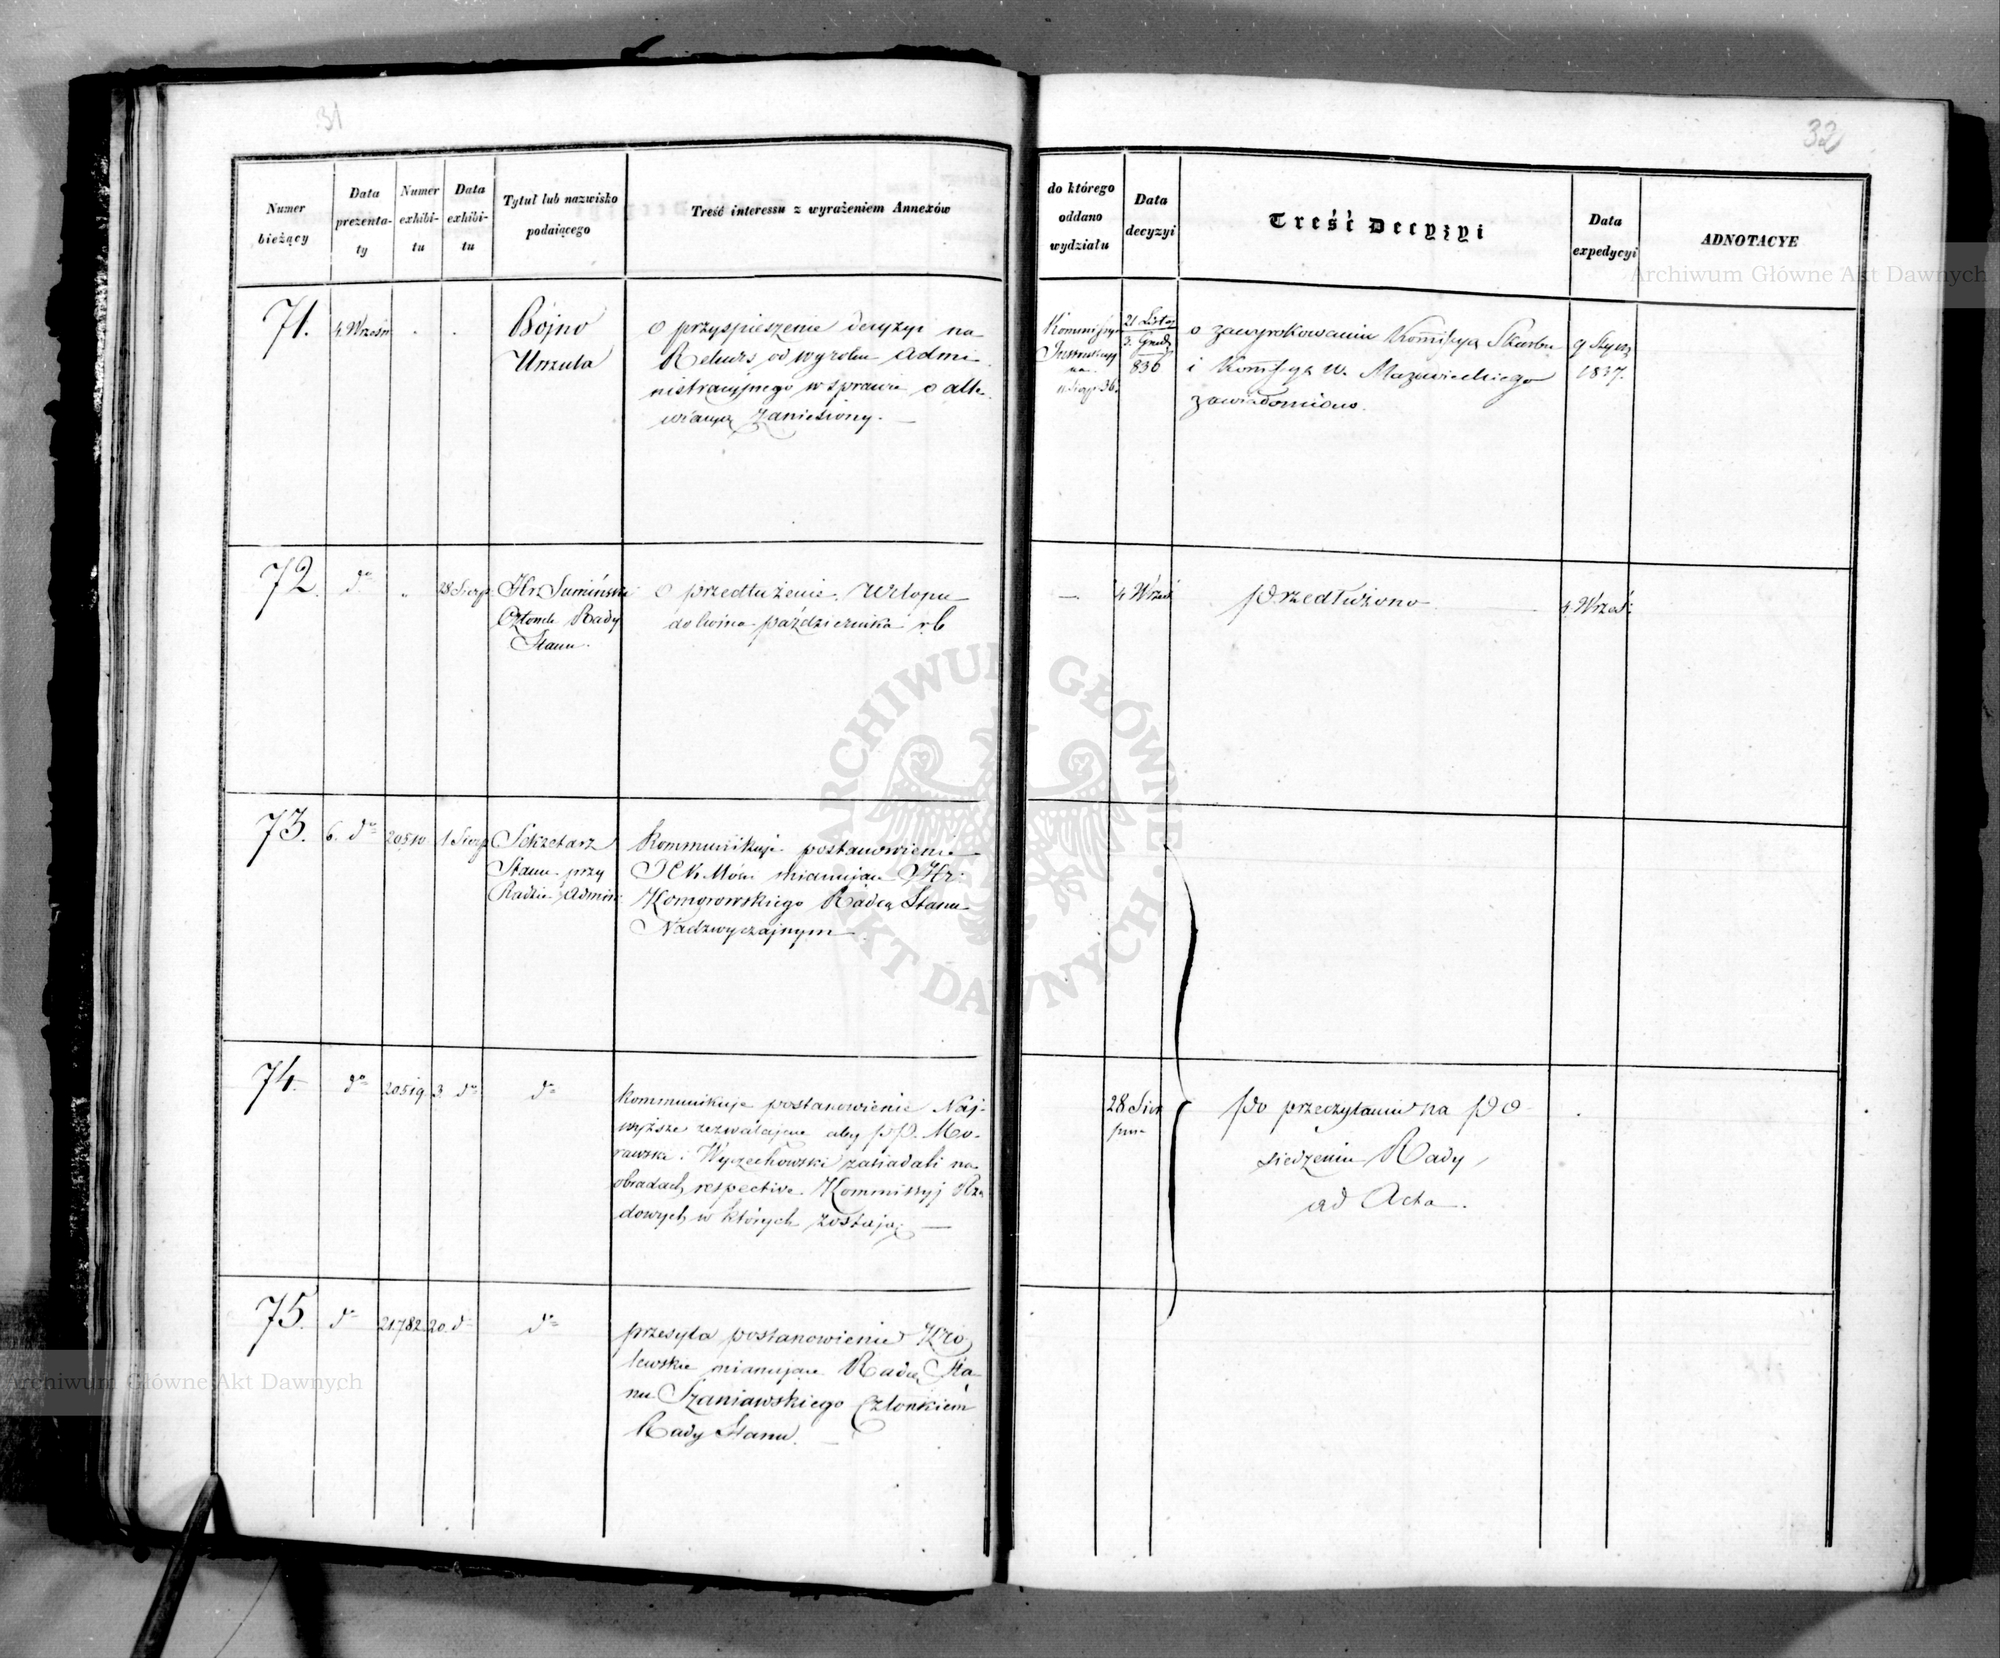 31
32
Numer
bieżący
Data
prezenta-
ty
Numer
exhibi-
tu
Data
exhibi-
tu
Tytuł lub nazwisko
podaiącego
Treść interessu z wyrażeniem Annexów
do którego
oddano
wydziału
Data
decyzyi
Treść Decyzyi
Data
expedycyi
ADNOTACYE
71.
4 Wrześn
Bojno
Urszula
o przyspieszenie decyzyi na
Rekurs od wyroku Admi
nistracyjnego w sprawie o
zaniesiony. —
21 Listop
3. Grud
836
o zawyrokowaniu Skarbu
i w. Mazowieckiego
zawiadomiono.
9 Stycz
1837.
72.
do
"
28 Sierp
Hr. Sumiński
Członek Rady
Stanu.
O przedłużenie Urlopu
do końca października r. b
—
4 Wrześ
przedłużono
4 Wrześ:
73.
6. do
20510
1 Sierp
Sekretarz
Stanu przy
Radzie Admin:
Kommunikuje postanowienie
mianujące Hr:
Komorowskiego Radcą Stanu
Nadzwyczajnym
74.
do
20519
3 do
do
Kommunikuje postanowienie Naj-
wyższe zezwalające aby PP. Mo-
rawski i Wyczechowski zasiadali na
obradach respective Kommissyj Rzą
dowych w których zostają; —
28 Sier
pnia
po przeczytaniu na po-
siedzeniu Rady,
ad Acta.
75.
do
21782
20. do
do
przesyła postanowienie Kró
lewskie mianujące Radcę Sta-
nu Szaniawskiego Członkiem
Rady Stanu.
ARCHIWUM GŁÓWNE AKT DAWNYCH
Archiwum Główne Akt Dawnych
Archiwum Główne Akt Dawnych